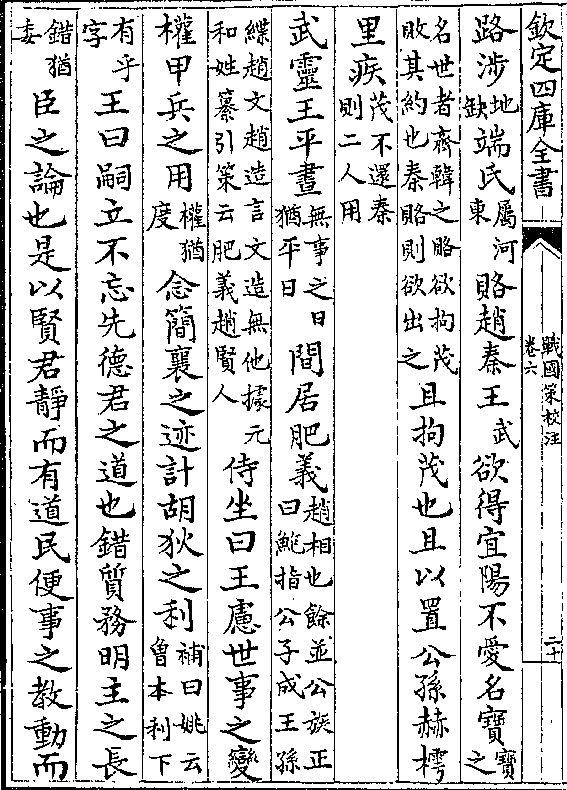 欽定四庫全書
戰國策校注
卷六
二十
路涉地缺端氏屬河東賂趙秦王武欲得宜陽不愛名寶寶之
名世者齊韓之賂欲拘茂敗其約也秦賂則欲出之且拘茂也且以置公孫赫樗
里疾茂不還秦則二人用
武靈王平晝無事之日猶平日間居肥義趙相也餘並公族正曰鮑指公子成王孫
緤趙文趙造言文造無他據元和姓纂引策云肥義趙賢人侍坐曰王慮世事之變
權甲兵之用權猶度念簡襄之迹計胡狄之利補曰姚云魯本利下
有乎字王曰嗣立不忘先德君之道也錯質務明主之長
錯猶委臣之論也是以賢君靜而有道民便事之教動而